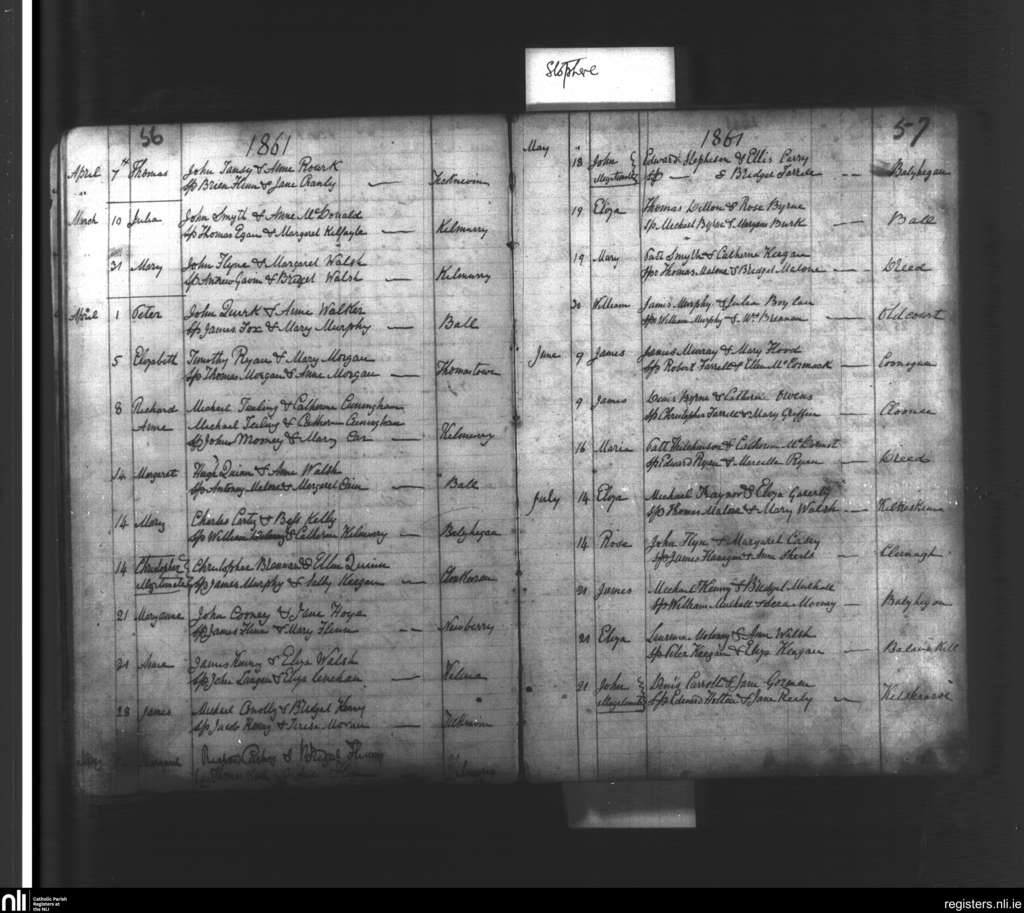 Stophere
56
1861
April 7th Thomas John Tansy & Anne Rourk
Sp Brien Flinn & Jane Cranly — Ticknevin
March 10 Julia John Smyth & Anne McDonald
Sp Thomas Egan & Margret Kilfayle — Kilmurry
31 Mary John Flyne & Margaret Walsh
Sp Andrew Gavin & Bridget Walsh — Kilmurry
April 1 Peter John Quirk & Anne Walker
Sp James Fox & Mary Murphy — Ball
5 Elizabeth Timothy Ryan & Mary Morgan
Sp Thomas Morgan & Anne Morgan — Thomastown
8 Richard Michael Tierling & Catherine Cuningham
Anne Michael Tierling & Catherine Cuningham
Sp John Mooney & Mary — Kilmurry
14 Margaret Hugh Quinn & Anne Walsh
Sp Antony Malone & Margaret — Ball
14 Mary Charles Carty & Bess Kelly
Sp William & Catherine Kilmurry — Balyhegan
14 Christopher Christopher Brennan & Ellen Quinn
Illegitimate Sp James Murphy & Sally Keegan —
21 Maryanne John Cooney & Jane Hoye
Sp James Flinn & Mary Flinn — Newberry
21 James Kenny & Eliza Walsh
Sp John & Eliza Lenehan —
28 James Michael Conolly & Bridget Kenny
Sp Kenny & Teresa Moran — Ticknevin
Bridget
57
1861
May 18 John Edward Stephson & Ellis Curry
Illegitimate Sp — & Bridget Farrell — Balyhegan
19 Eliza Thomas Dillon & Rose Byrne
Sp Michael Byrne & Maryann Burk — Ball
19 Mary Patt Smyth & Catherine Keegan
Sp Thomas Malone & Bridget Malone — Dreed
20 William James Murphy & Julia Boylan
Sp William Murphy & Brennan — Oldcourt
June 9 James James Murray & Mary Flood
Sp Robert Farrell & Ellen McCormack —
9 James Denis Byrne & Catherine Owens
Sp Christopher Farrell & Mary Griffin — Cloonce
16 Maria Patt Hutchinson & Catherine
Sp Edward Ryan & Marcella Ryan — Dreed
July 14 Eliza Michael Traynor & Eliza Gaverty
Sp Thomas Malone & Mary Walsh — Kilkeskin
14 Rose John Flyn & Margaret Casey
Sp James Flanagan & Ann — Clonagh
21 James Michael Kenny & Bridget Mulhall
Sp William Mulhall & Mooney — Balyhegan
21 Eliza Laurence Moloney & Ann Walsh
Sp Peter Keegan & Eliza Keegan —
21 John Denis Parrott & Jane Gorman
Illegitimate Sp Edward & Jane Reily —
nli
Catholic Parish
Registers at
the NLI
registers.nli.ie